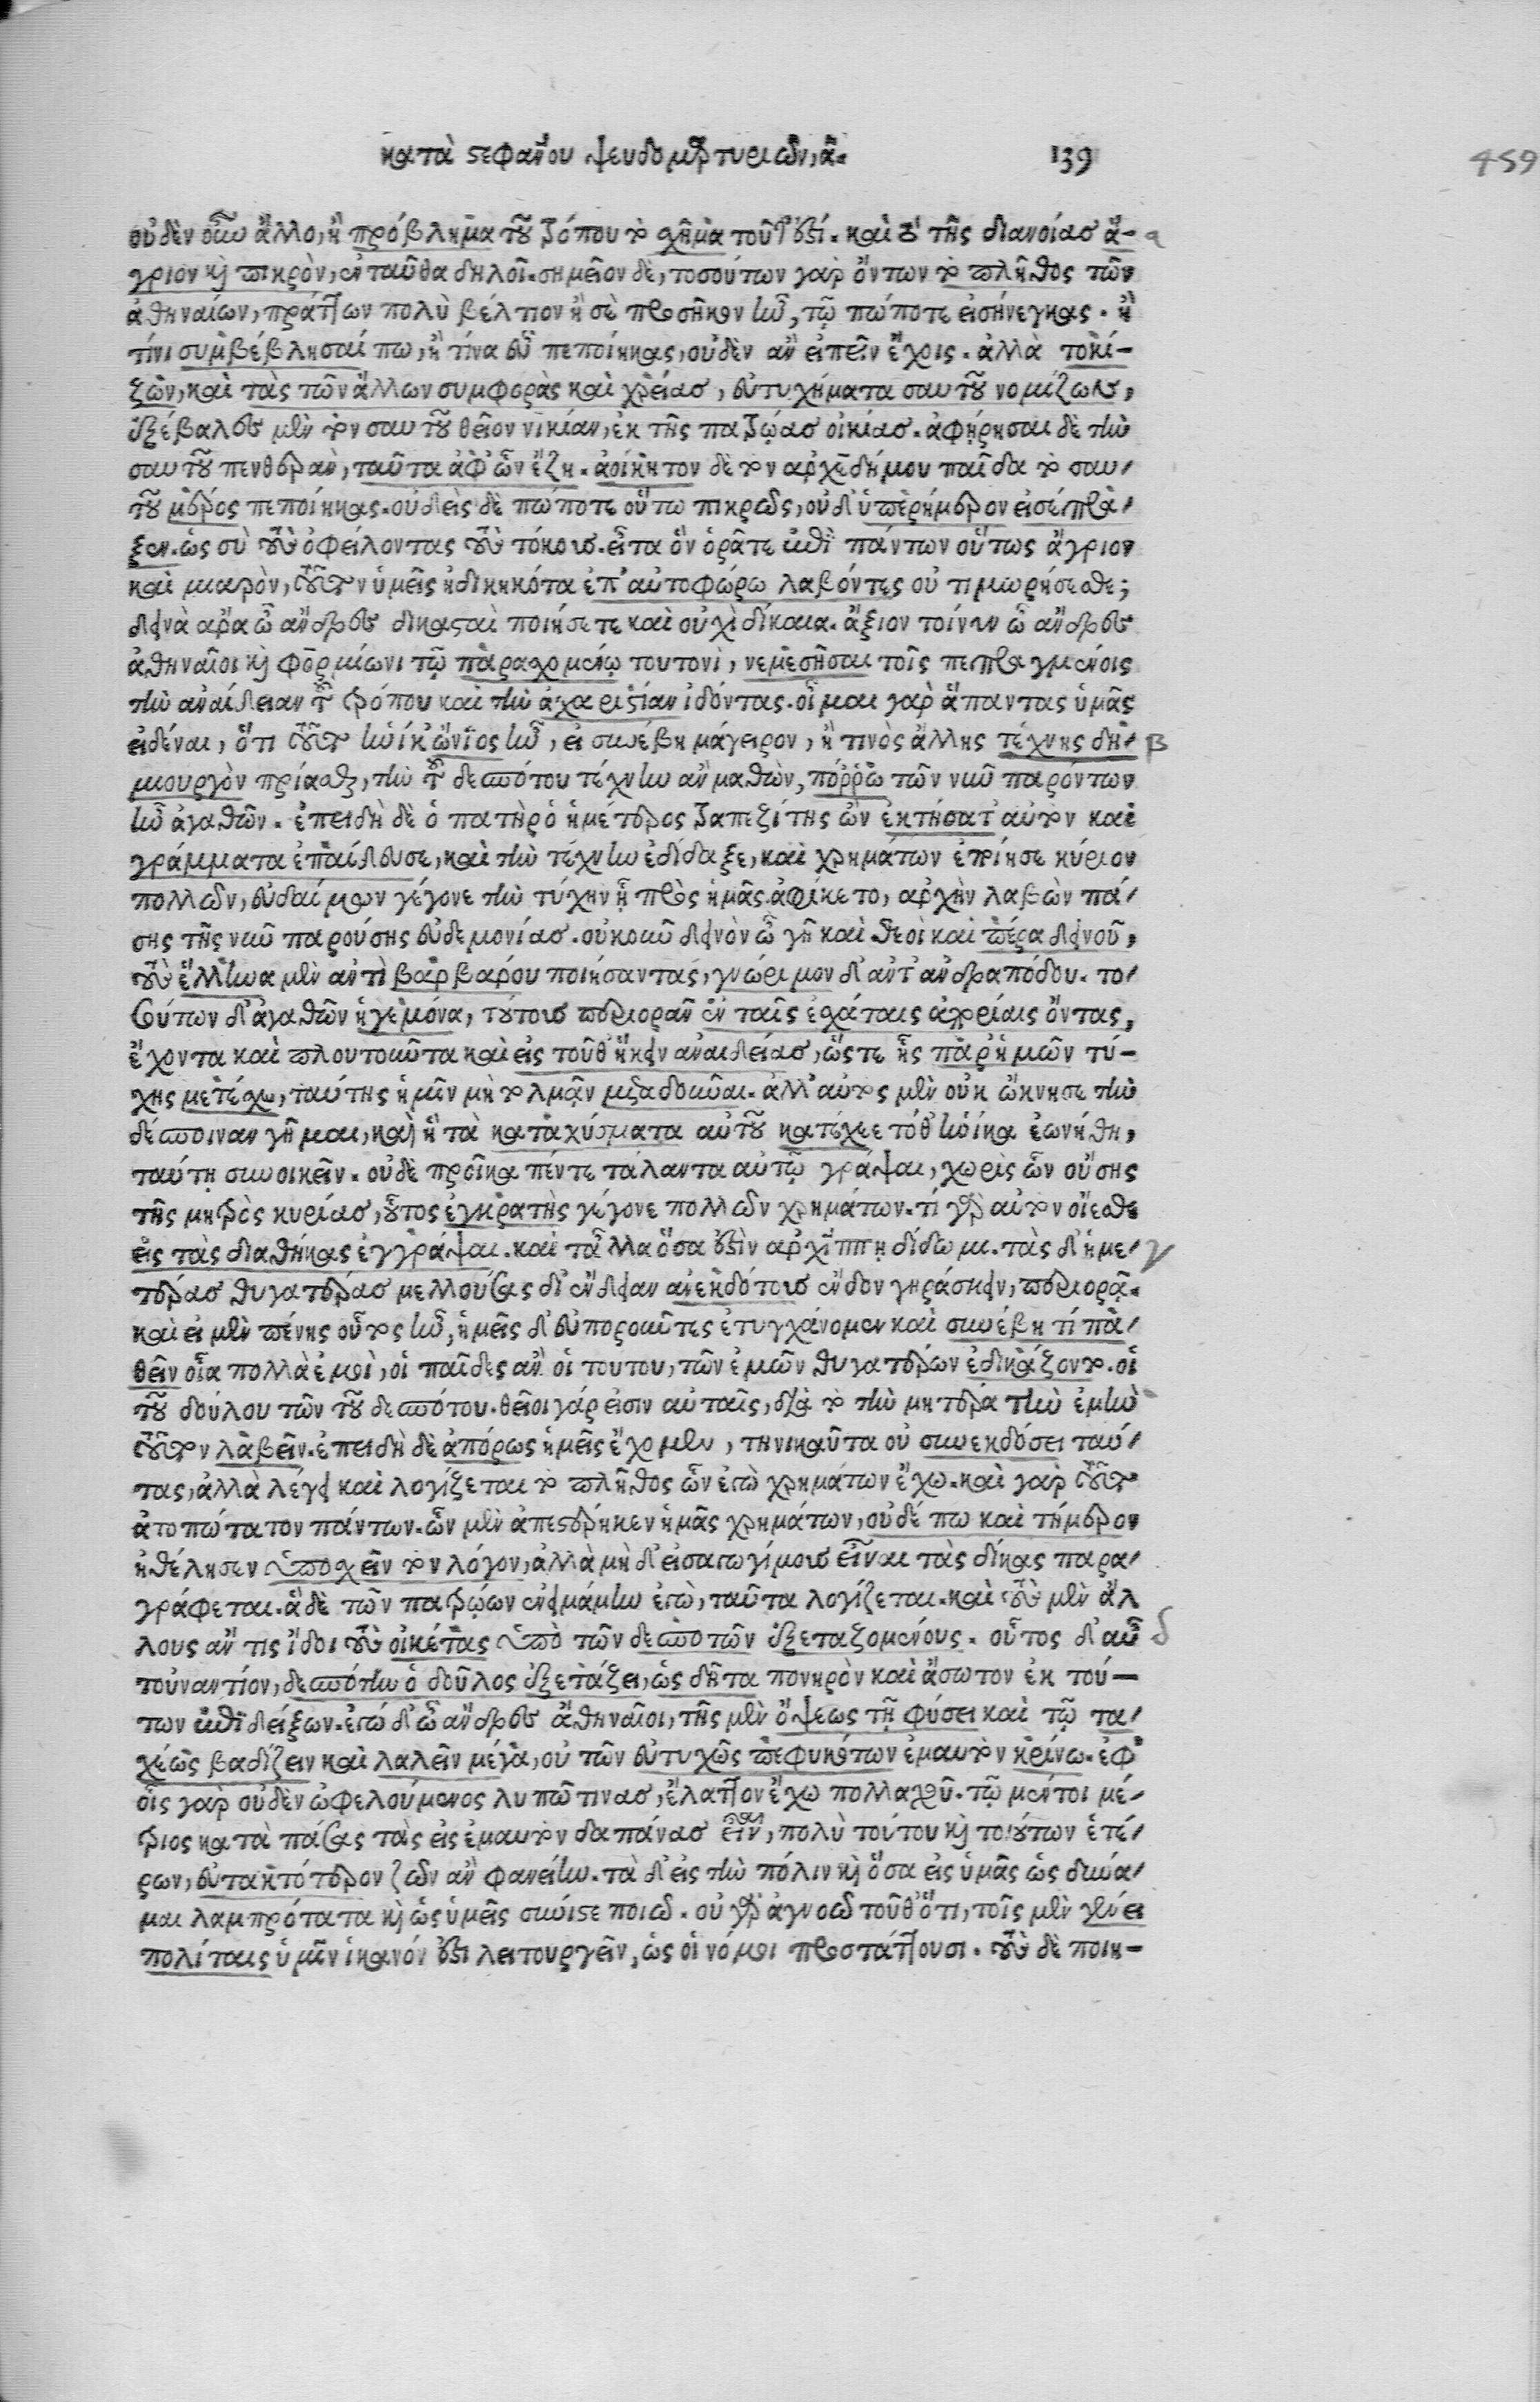 κατὰ στεφάνου ψευδομαρτυριῶν, α. 139
459
οὐδὲν οὖν ἄλλο, ἢ πρόβλημα τοῦ τρόπου τὸ σχῆμα τοῦτ' ἐστί. καὶ τὸ τῆς διανοίας ἄ- α
γριον καὶ πικρὸν, ἐνταῦθα δηλοῖ. σημεῖον δὲ, τοσούτων γὰρ ὄντων τὸ πλῆθος τῶν
ἀθηναίων, πράττων πολὺ βέλτιον ἢ σὲ προσῆκον ἦν, τῷ πώποτε εἰσήνεγκας. ἢ
τίνι συμβέβλησαί πω, ἢ τίνα εὖ πεποίηκας, οὐδὲν ἂν εἰπεῖν ἔχοις. ἀλλὰ τοκί-
ζων, καὶ τὰς τῶν ἄλλων συμφορὰς καὶ χρείας, εὐτυχήματα σαυτοῦ νομίζων,
ἐξέβαλες μὲν τὸν σαυτοῦ θεῖον νικίαν, ἐκ τῆς πατρῴας οἰκίας. ἀφῄρησαι δὲ τὴν
σαυτοῦ πενθερὰν, ταῦτα ἀφ' ὧν ἔζη. ἀοίκητον δὲ τὸν ἀρχεδήμου παῖδα τὸ σαυ-
τοῦ μέρος πεποίηκας. οὐδεὶς δὲ πώποτε οὕτω πικρῶς, οὐδ' ὑπερήμερον εἰσέπρα-
ξεν. ὡς σὺ τοὺς ὀφείλοντας τοὺς τόκους. εἶτα ὃν ὁρᾶτε ἐπὶ πάντων οὕτως ἄγριον
καὶ μιαρὸν, τοῦτον ὑμεῖς ἠδικηκότα ἐπ' αὐτοφώρῳ λαβόντες οὐ τιμωρήσεσθε;
δεινὰ ἄρα ὦ ἄνδρες δικασταὶ ποιήσετε καὶ οὐχὶ δίκαια. ἄξιον τοίνυν ὦ ἄνδρες
ἀθηναῖοι καὶ φορμίωνι τῷ παρασχομένῳ τουτονὶ, νεμεσῆσαι τοῖς πεπραγμένοις
τὴν ἀναίδειαν τοῦ τρόπου καὶ τὴν ἀχαριστίαν ἰδόντας. οἶμαι γὰρ ἅπαντας ὑμᾶς
εἰδέναι, ὅτι τοῦτον ἡνίκ' ὤνιος ἦν, εἰ συνέβη μάγειρον, ἤ τινος ἄλλης τέχνης δη- β
μιουργὸν πρίασθαι, τὴν τοῦ δεσπότου τέχνην ἂν μαθὼν, πόρρω τῶν νῦν παρόντων
ἦν ἀγαθῶν. ἐπειδὴ δὲ ὁ πατὴρ ὁ ἡμέτερος τραπεζίτης ὢν ἐκτήσατ' αὐτὸν καὶ
γράμματα ἐπαίδευσε, καὶ τὴν τέχνην ἐδίδαξε, καὶ χρημάτων ἐποίησε κύριον
πολλῶν, εὐδαίμων γέγονε τὴν τύχην ᾗ πρὸς ἡμᾶς ἀφίκετο, ἀρχὴν λαβὼν πά-
σης τῆς νῦν παρούσης εὐδαιμονίας. οὐκοῦν δεινὸν ὦ γῆ καὶ θεοὶ καὶ πέρα δεινοῦ,
τοὺς ἕλληνα μὲν ἀντὶ βαρβάρου ποιήσαντας, γνώριμον δ' ἀντ' ἀνδραπόδου. το-
σούτων δ' ἀγαθῶν ἡγεμόνα, τούτους περιορᾶν ἐν ταῖς ἐσχάταις ἀπορίαις ὄντας,
ἔχοντα καὶ πλουτοῦντα καὶ εἰς τοῦθ' ἥκειν ἀναιδείας, ὥστε ἧς παρ' ἡμῶν τύ-
χης μετέσχεν, ταύτης ἡμῖν μὴ τολμᾶν μεταδοῦναι. ἀλλ' αὐτὸς μὲν οὐκ ὤκνησε τὴν
δέσποιναν γῆμαι, καὶ ἣ τὰ καταχύσματα αὐτοῦ κατέχεε τόθ' ἡνίκα ἐωνήθη,
ταύτῃ συνοικεῖν. οὐδὲ προῖκα πέντε τάλαντα αὐτῷ γράψαι, χωρὶς ὧν οὔσης
τῆς μητρὸς κυρίας, οὗτος ἐγκρατὴς γέγονε πολλῶν χρημάτων. τί γὰρ αὐτὸν οἴεσθε
εἰς τὰς διαθήκας ἐγγράψαι. καὶ τἄλλα ὅσα ἐστὶν ἀρχίππῃ δίδωμι. τὰς δ' ἡμε- γ
τέρας θυγατέρας μελλούσας δι' ἔνδειαν ἀνεκδότους ἔνδον γηράσκειν, περιορᾷ.
καὶ εἰ μὲν πένης οὗτος ἦν, ἡμεῖς δ' εὐποροῦντες ἐτυγχάνομεν καὶ συνέβη τί πα-
θεῖν οἷα πολλὰ ἐμοὶ, οἱ παῖδες ἂν οἱ τούτου, τῶν ἐμῶν θυγατέρων ἐδικάζοντο. οἱ
τοῦ δούλου τῶν τοῦ δεσπότου. θεῖοι γάρ εἰσιν αὐταῖς, διὰ τὸ τὴν μητέρα τὴν ἐμὴν
τοῦτον λαβεῖν. ἐπειδὴ δὲ ἀπόρως ἡμεῖς ἔχομεν, τηνικαῦτα οὐ συνεκδώσει ταύ-
τας, ἀλλὰ λέγει καὶ λογίζεται τὸ πλῆθος ὧν ἐγὼ χρημάτων ἔχω. καὶ γὰρ τοῦτο
ἀτοπώτατον πάντων. ὧν μὲν ἀπεστέρηκεν ἡμᾶς χρημάτων, οὐδέπω καὶ τήμερον
ἠθέλησεν ὑποσχεῖν τὸν λόγον, ἀλλὰ μὴ δ' εἰσαγωγίμους εἶναι τὰς δίκας παρα-
γράφεται. ἃ δὲ τῶν πατρῴων ἐνειμάμην ἐγὼ, ταῦτα λογίζεται. καὶ τοὺς μὲν ἄλ
λους ἄν τις ἴδοι τοὺς οἰκέτας ὑπὸ τῶν δεσποτῶν ἐξεταζομένους. οὗτος δ' αὖ δ
τοὐναντίον, δεσπότην ὁ δοῦλος ἐξετάζει, ὡς δῆτα πονηρὸν καὶ ἄσωτον ἐκ τού-
των ἐπιδείξων. ἐγὼ δ' ὦ ἄνδρες ἀθηναῖοι, τῆς μὲν ὄψεως τῇ φύσει καὶ τῷ τα-
χέως βαδίζειν καὶ λαλεῖν μέγα, οὐ τῶν εὐτυχῶς πεφυκότων ἐμαυτὸν κρίνω. ἐφ'
οἷς γὰρ οὐδὲν ὠφελούμενος λυπῶ τινας, ἔλαττον ἔχω πολλαχοῦ. τῷ μέντοι μέ-
τριος κατὰ πάσας τὰς εἰς ἐμαυτὸν δαπάνας εἶναι, πολὺ τούτου καὶ τοιούτων ἑτέ-
ρων, εὐτακτότερον ζῶν ἂν φανείην. τὰ δ' εἰς τὴν πόλιν καὶ ὅσα εἰς ὑμᾶς ὡς δύνα-
μαι λαμπρότατα καὶ ὡς ὑμεῖς σύνιστε ποιῶ. οὐ γὰρ ἀγνοῶ τοῦθ' ὅτι, τοῖς μὲν γένει
πολίταις ὑμῖν ἱκανόν ἐστι λειτουργεῖν, ὡς οἱ νόμοι προστάττουσι. τοὺς δὲ ποιη-